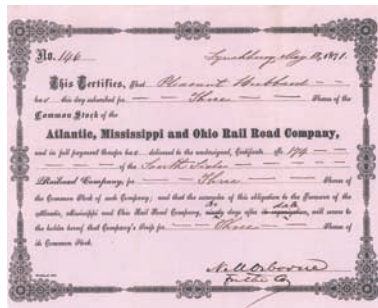 No. 146 Lynchburg, May 10, 1871
This Certifies, That Pleasant Hubbard
has this day subscribed for Three Shares of the
Common Stock of the
Atlantic, Mississippi and Ohio Rail Road Company,
and in full payment therefor has delivered to the undersigned, Certificate No. 174
of the South Side
Railroad Company, for Three Shares of
the Common Stock of such Company; and that the execution of this obligation to the Company of the
Atlantic, Mississippi and Ohio Rail Road Company, ninety days after its organization, date will secure to
the holder hereof that Company's Scrip for Three Shares of
its Common Stock.
For the Co